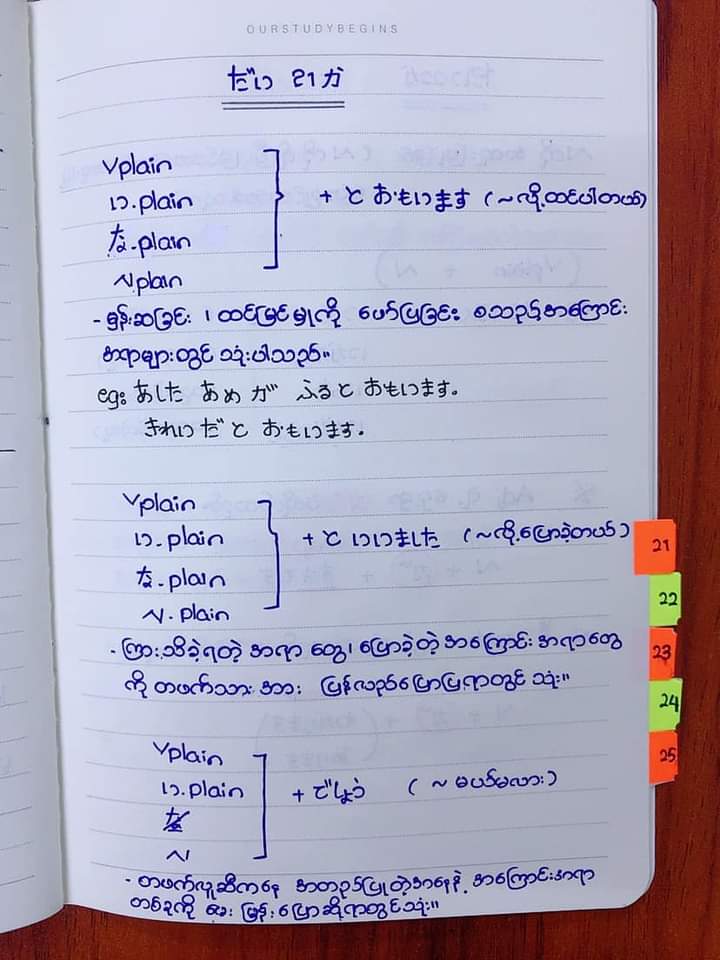 OURSTUDYBEGINS
だい 21 か
Vplain
い.plain
な.plain
Nplain
+ と おもいます (~လို့ထင်ပါတယ်)
- မှန်းဆခြင်း၊ ထင်မြင်မှုကို ဖော်ပြခြင်း စသည့်အကြောင်း
အရာများတွင် သုံးပါသည်။
eg: あした あめ が ふる と おもいます。
きれい だ と おもいます。
Vplain
い.plain
な.plain
N.plain
+ と いいました (~လို့ပြောခဲ့တယ်)
- ကြားသိခဲ့ရတဲ့ အရာ တွေ၊ ပြောခဲ့တဲ့ အကြောင်း အရာတွေ
ကို တဖက်သား အား ပြန်လည်ပြောပြရာတွင် သုံး။
Vplain
い.plain
な
N
+ でしょう (~မဟုတ်မလား)
- တဖက်လူဆီကနေ အတည်ပြုတဲ့အနေနဲ့ အကြောင်းအရာ
တစ်ခုကို မေးမြန်းပြောဆိုရာတွင်သုံး။
21
22
23
24
25